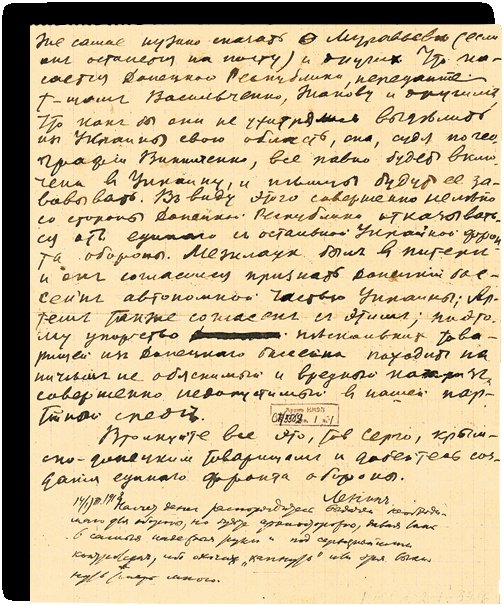 же самое нужно сказать о Муравьеве (если
он останется на посту) и других. Что ка-
сается Донецкой Республики, передайте
т-щам Васильченко, Жакову и другим,
что как бы они не ухитрялись выделить
из Украины свою область, она, судя по гео-
графии Винниченко, все равно будет вклю-
чена в Украину, и немцы будут ее за-
воевывать. В виду этого совершенно нелепо
со стороны Донецкой Республики отказывать-
ся от единого с остальной Украиной фрон-
та обороны. Межлаук был в Питере,
и он согласился признать Донецкий бас-
сейн автономной частью Украины; Ар-
тем также согласен с этим; поэто-
му упорство нескольких това-
рищей из Донецкого бассейна походит на
ничем не объяснимый и вредный каприз,
совершенно недопустимый в нашей пар-
тийной среде.
Втолкуйте все это, тов. Серго, крым-
ско-донецким товарищам и добейтесь соз-
дания единого фронта обороны.
Ленин
14/III 1918
Насчет денег распорядитесь
но
в самые надежные руки и под
контролем, ибо охочих „хапнуть"
много.